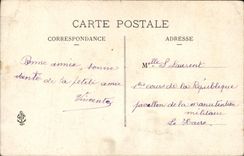 CARTE POSTALE
CORRESPONDANCE
ADRESSE
Bonne année, bonne
santé de la petite amie
Mlle S Laurent
cour de la République
pavillon de la manutention
militaire
Le Havre